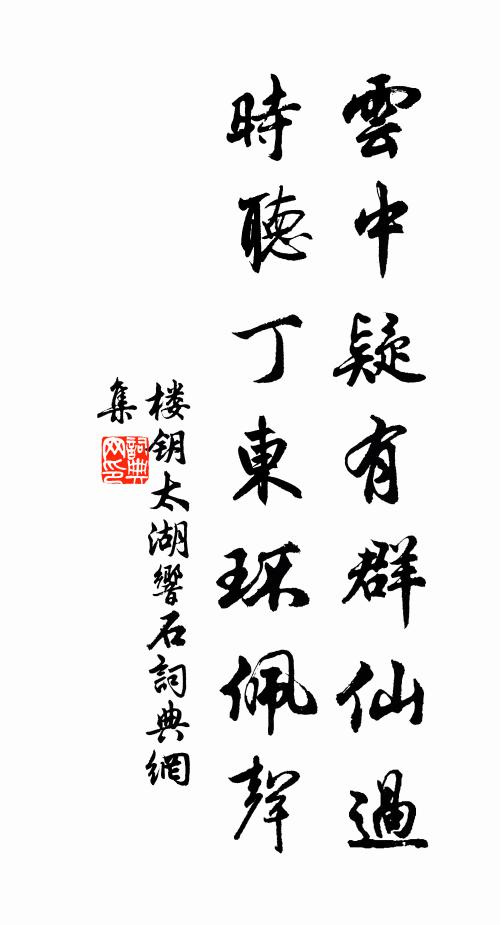 雲中疑有群仙過
時聽丁東环佩聲
楼钥太湖響石詞典網
集
詞典
网印